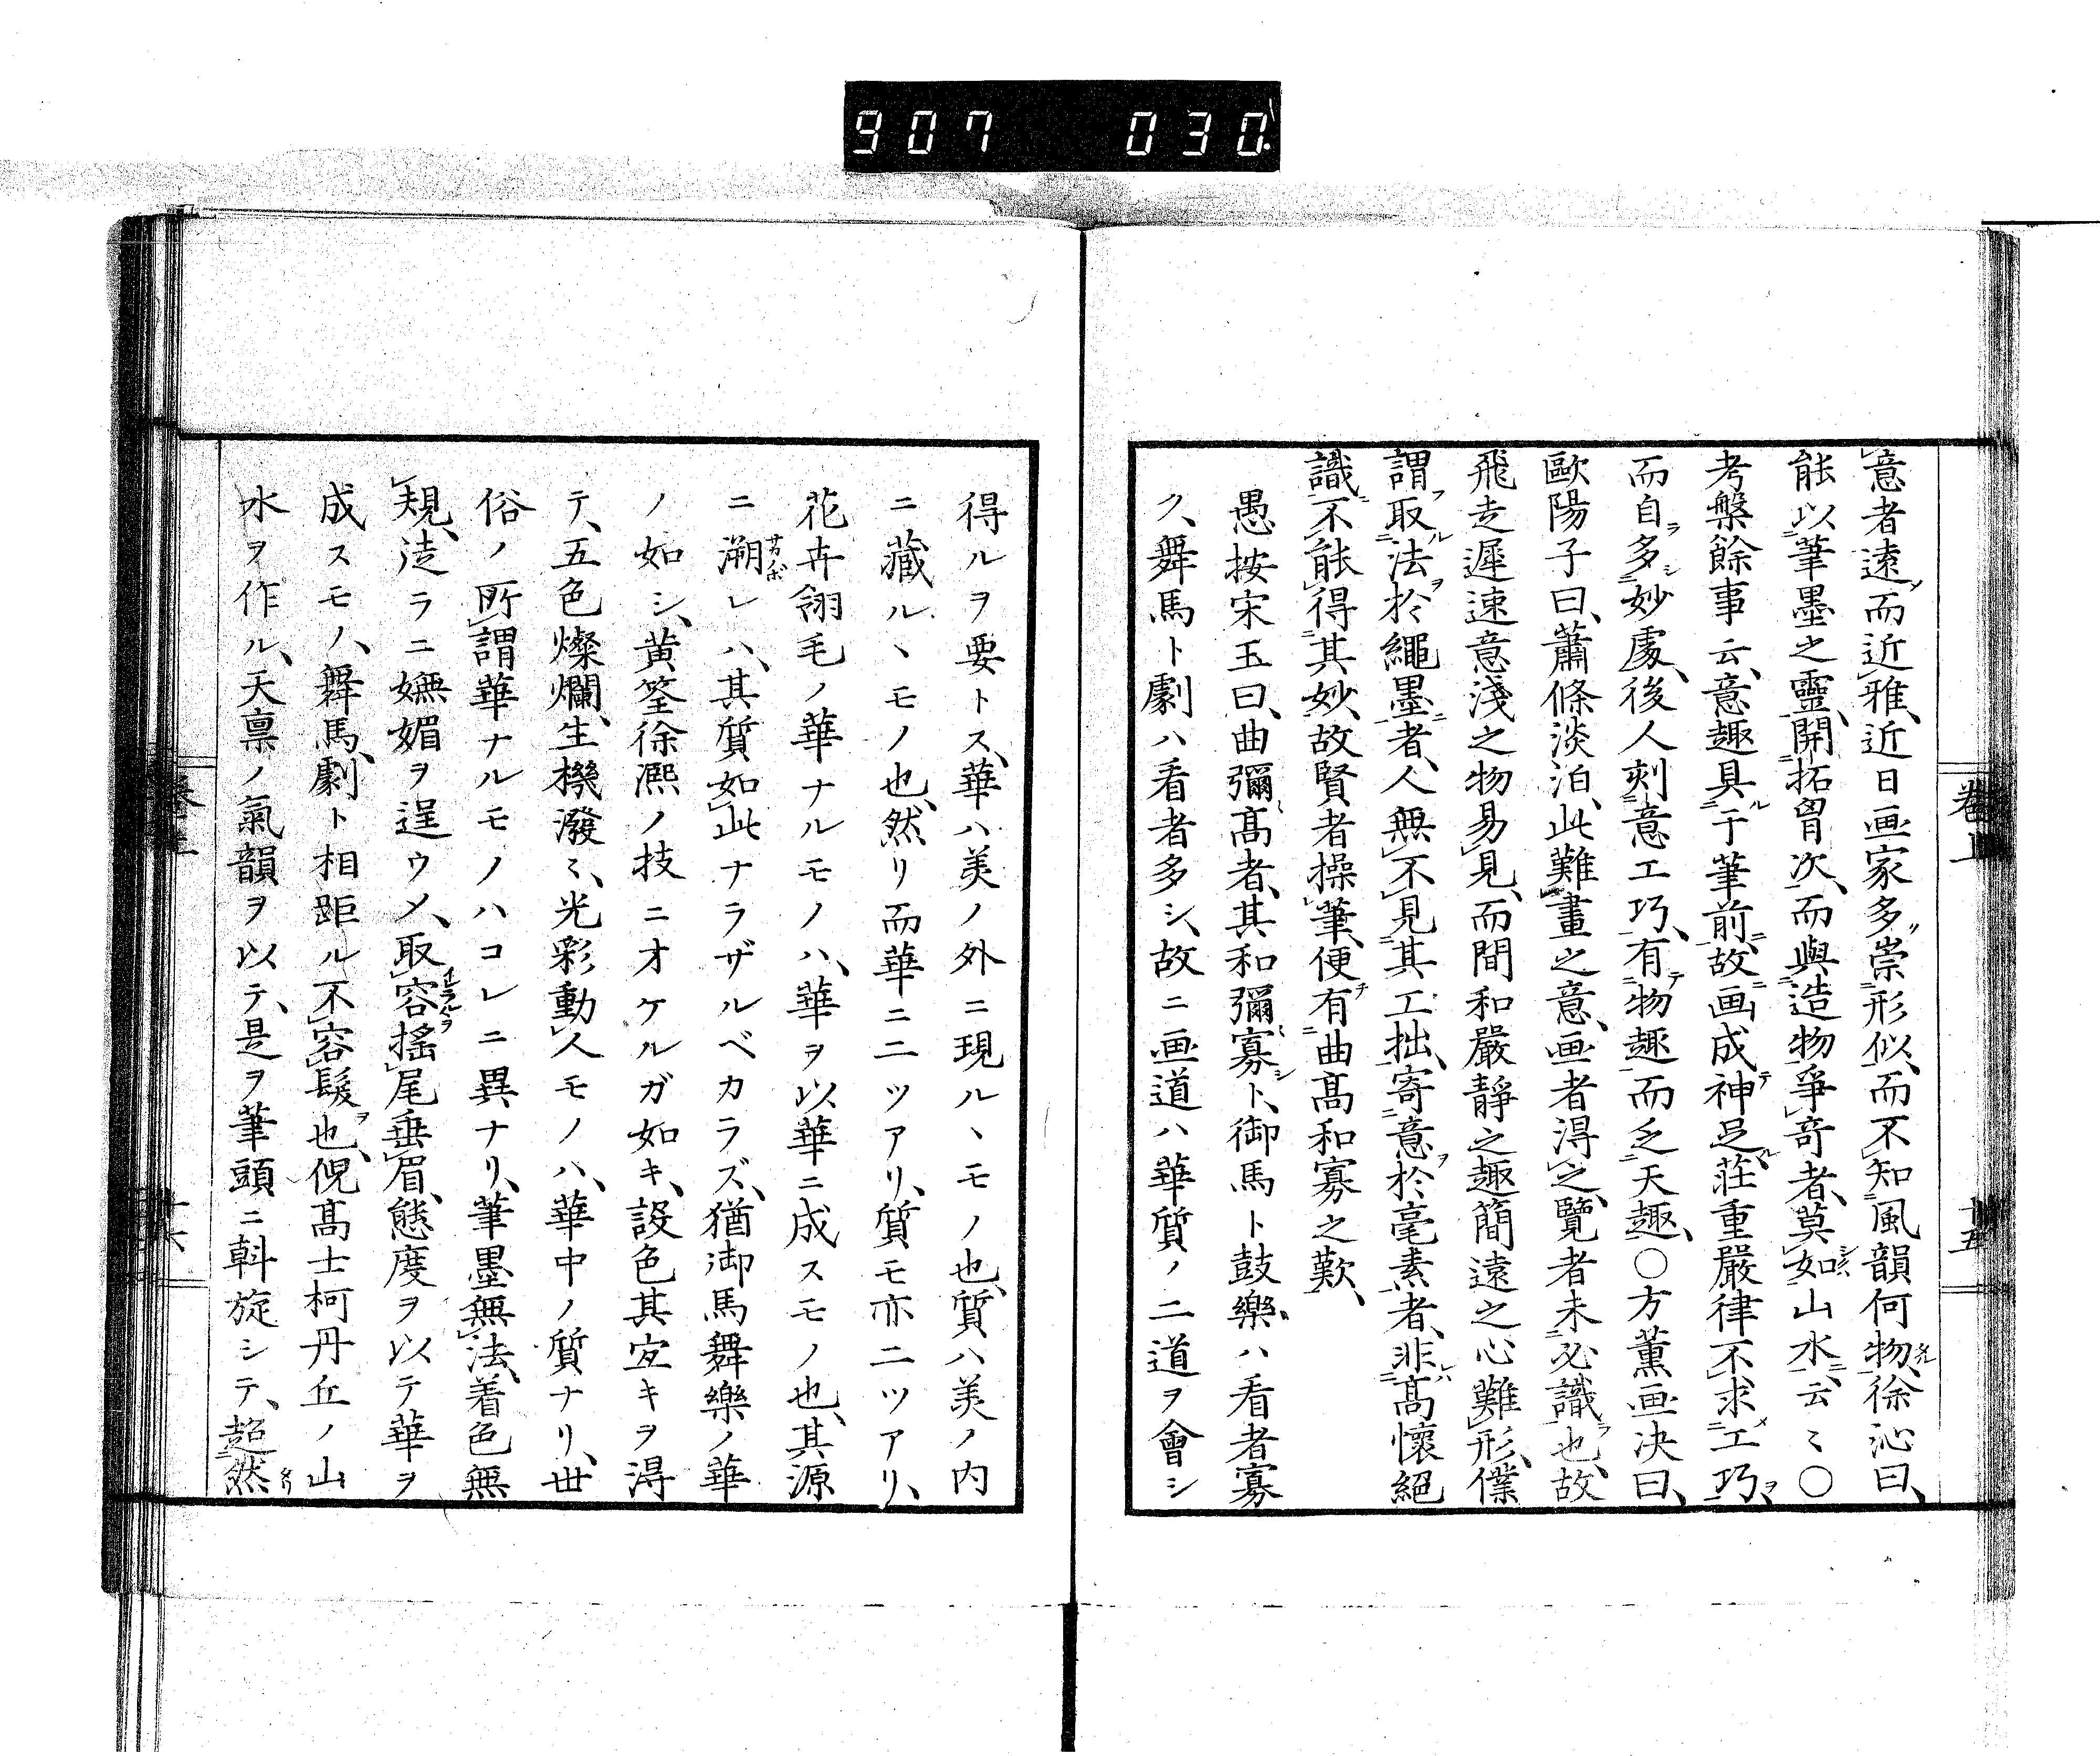 907 030
意者遠而近雅、近日画家多崇形似、而不知風韻何物、徐沁曰、
能以筆墨之靈、開拓胷次、而與造物爭奇者、莫如山水、云〻○
考槃餘事云、意趣具于筆前、故画成神足、莊重嚴律不求工巧、
而自多妙處、後人刻意工巧、有物趣而乏天趣、○方薫画决曰、
歐陽子曰、蕭條淡泊、此難畫之意、画者得之、覽者未必識也、故
飛走遲速意淺之物易見、而間和嚴靜之趣簡遠之心難形、僕
謂取法於繩墨者、人無不見其工拙、寄意於毫素者、非髙懷絕
識不能得其妙、故賢者操筆、便有曲髙和寡之歎、
愚按宋玉曰、曲彌髙者、其和彌寡ト、御馬ト鼓樂ハ看者寡
ク、舞馬ト劇ハ看者多シ、故ニ画道ハ華質ノ二道ヲ會シ
卷上
十五
得ルヲ要トス、華ハ美ノ外ニ現ルヽモノ也、質ハ美ノ内
ニ藏ルヽモノ也、然リ而華ニ二ツアリ、質モ亦二ツアリ、
花卉翎毛ノ華ナルモノハ、華ヲ以華ニ成スモノ也、其源
ニ溯レハ、其質如此ナラザルベカラズ、猶御馬舞樂ノ華
ノ如シ、黄筌徐熈ノ技ニオケルガ如キ、設色其宜キヲ得
テ、五色燦爛、生機潑〻、光彩動人モノハ、華中ノ質ナリ、世
俗ノ所謂華ナルモノハコレニ異ナリ、筆墨無法、着色無
規、徒ラニ嫵媚ヲ逞ウメ、取容搖尾垂眉、態度ヲ以テ華ヲ
成スモノ、舞馬、劇ト相距ル不容髮也、倪髙士柯丹丘ノ山
水ヲ作ル、天禀ノ氣韻ヲ以テ、是ヲ筆頭ニ斡旋シテ、超然
十六